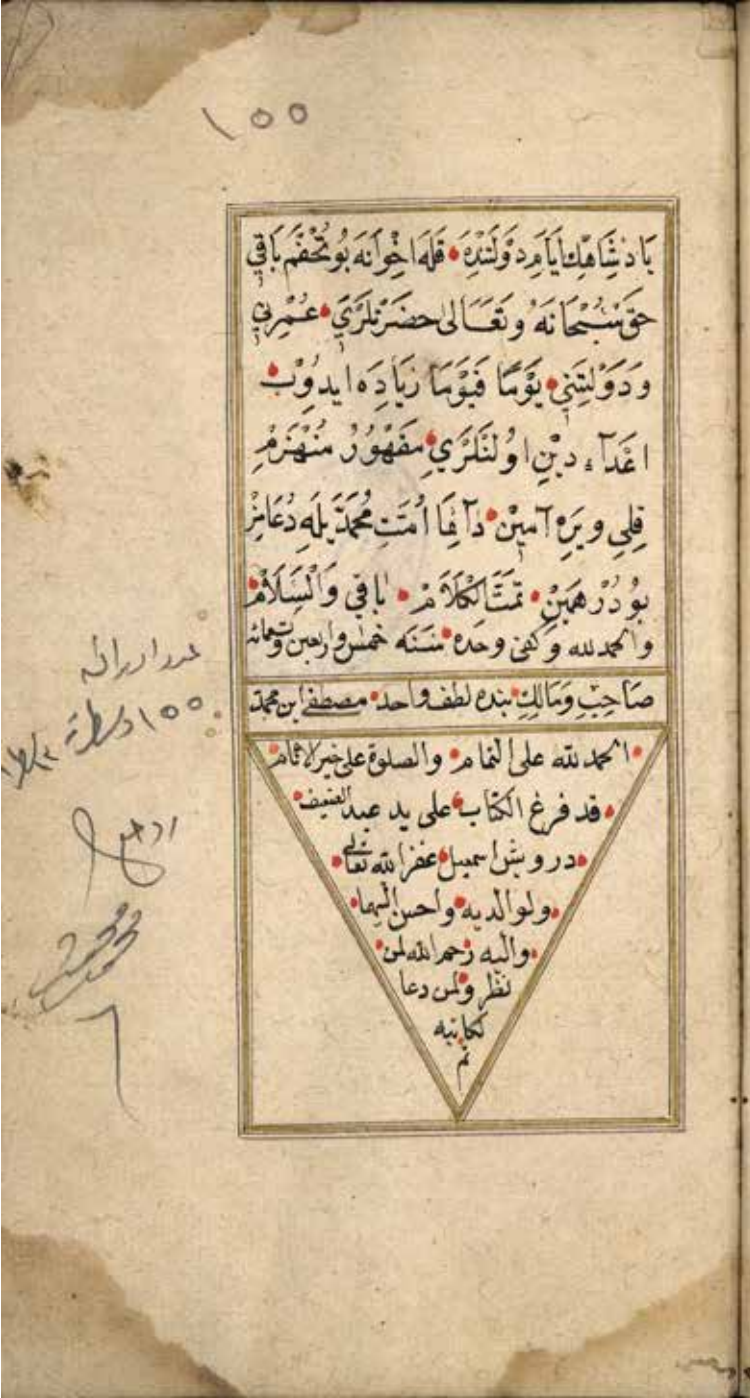 ١٠٠
پادشاهك ايام دولتنده قله اخوانه بو تحفم باقي
حق سبحانه وتعالى حضرتلري عمرني
ودولتني يوما فيوما زياده ايدوب
اعداء دين اولنلري مقهور منهزم
قلي ويره آمين دآئما امت محمد يله دعامز
بودر همين تمت الكلام باقي والسلام
والحمد لله وكفى وحده سنه خمس واربعين وتسعمائه
صاحب ومالك بنده لطف واحد مصطفى ابن محمد
الحمد لله على التمام والصلوة على خير الانام
قد فرغ الكتاب على يد عبد الضعيف
درويش اسمعيل غفر الله تعالى
ولوالديه واحسن اليهما
واليه رحم الله لمن
نظر ولمن دعا
لكاتبه
تم
عدد اوراق
١٠٠